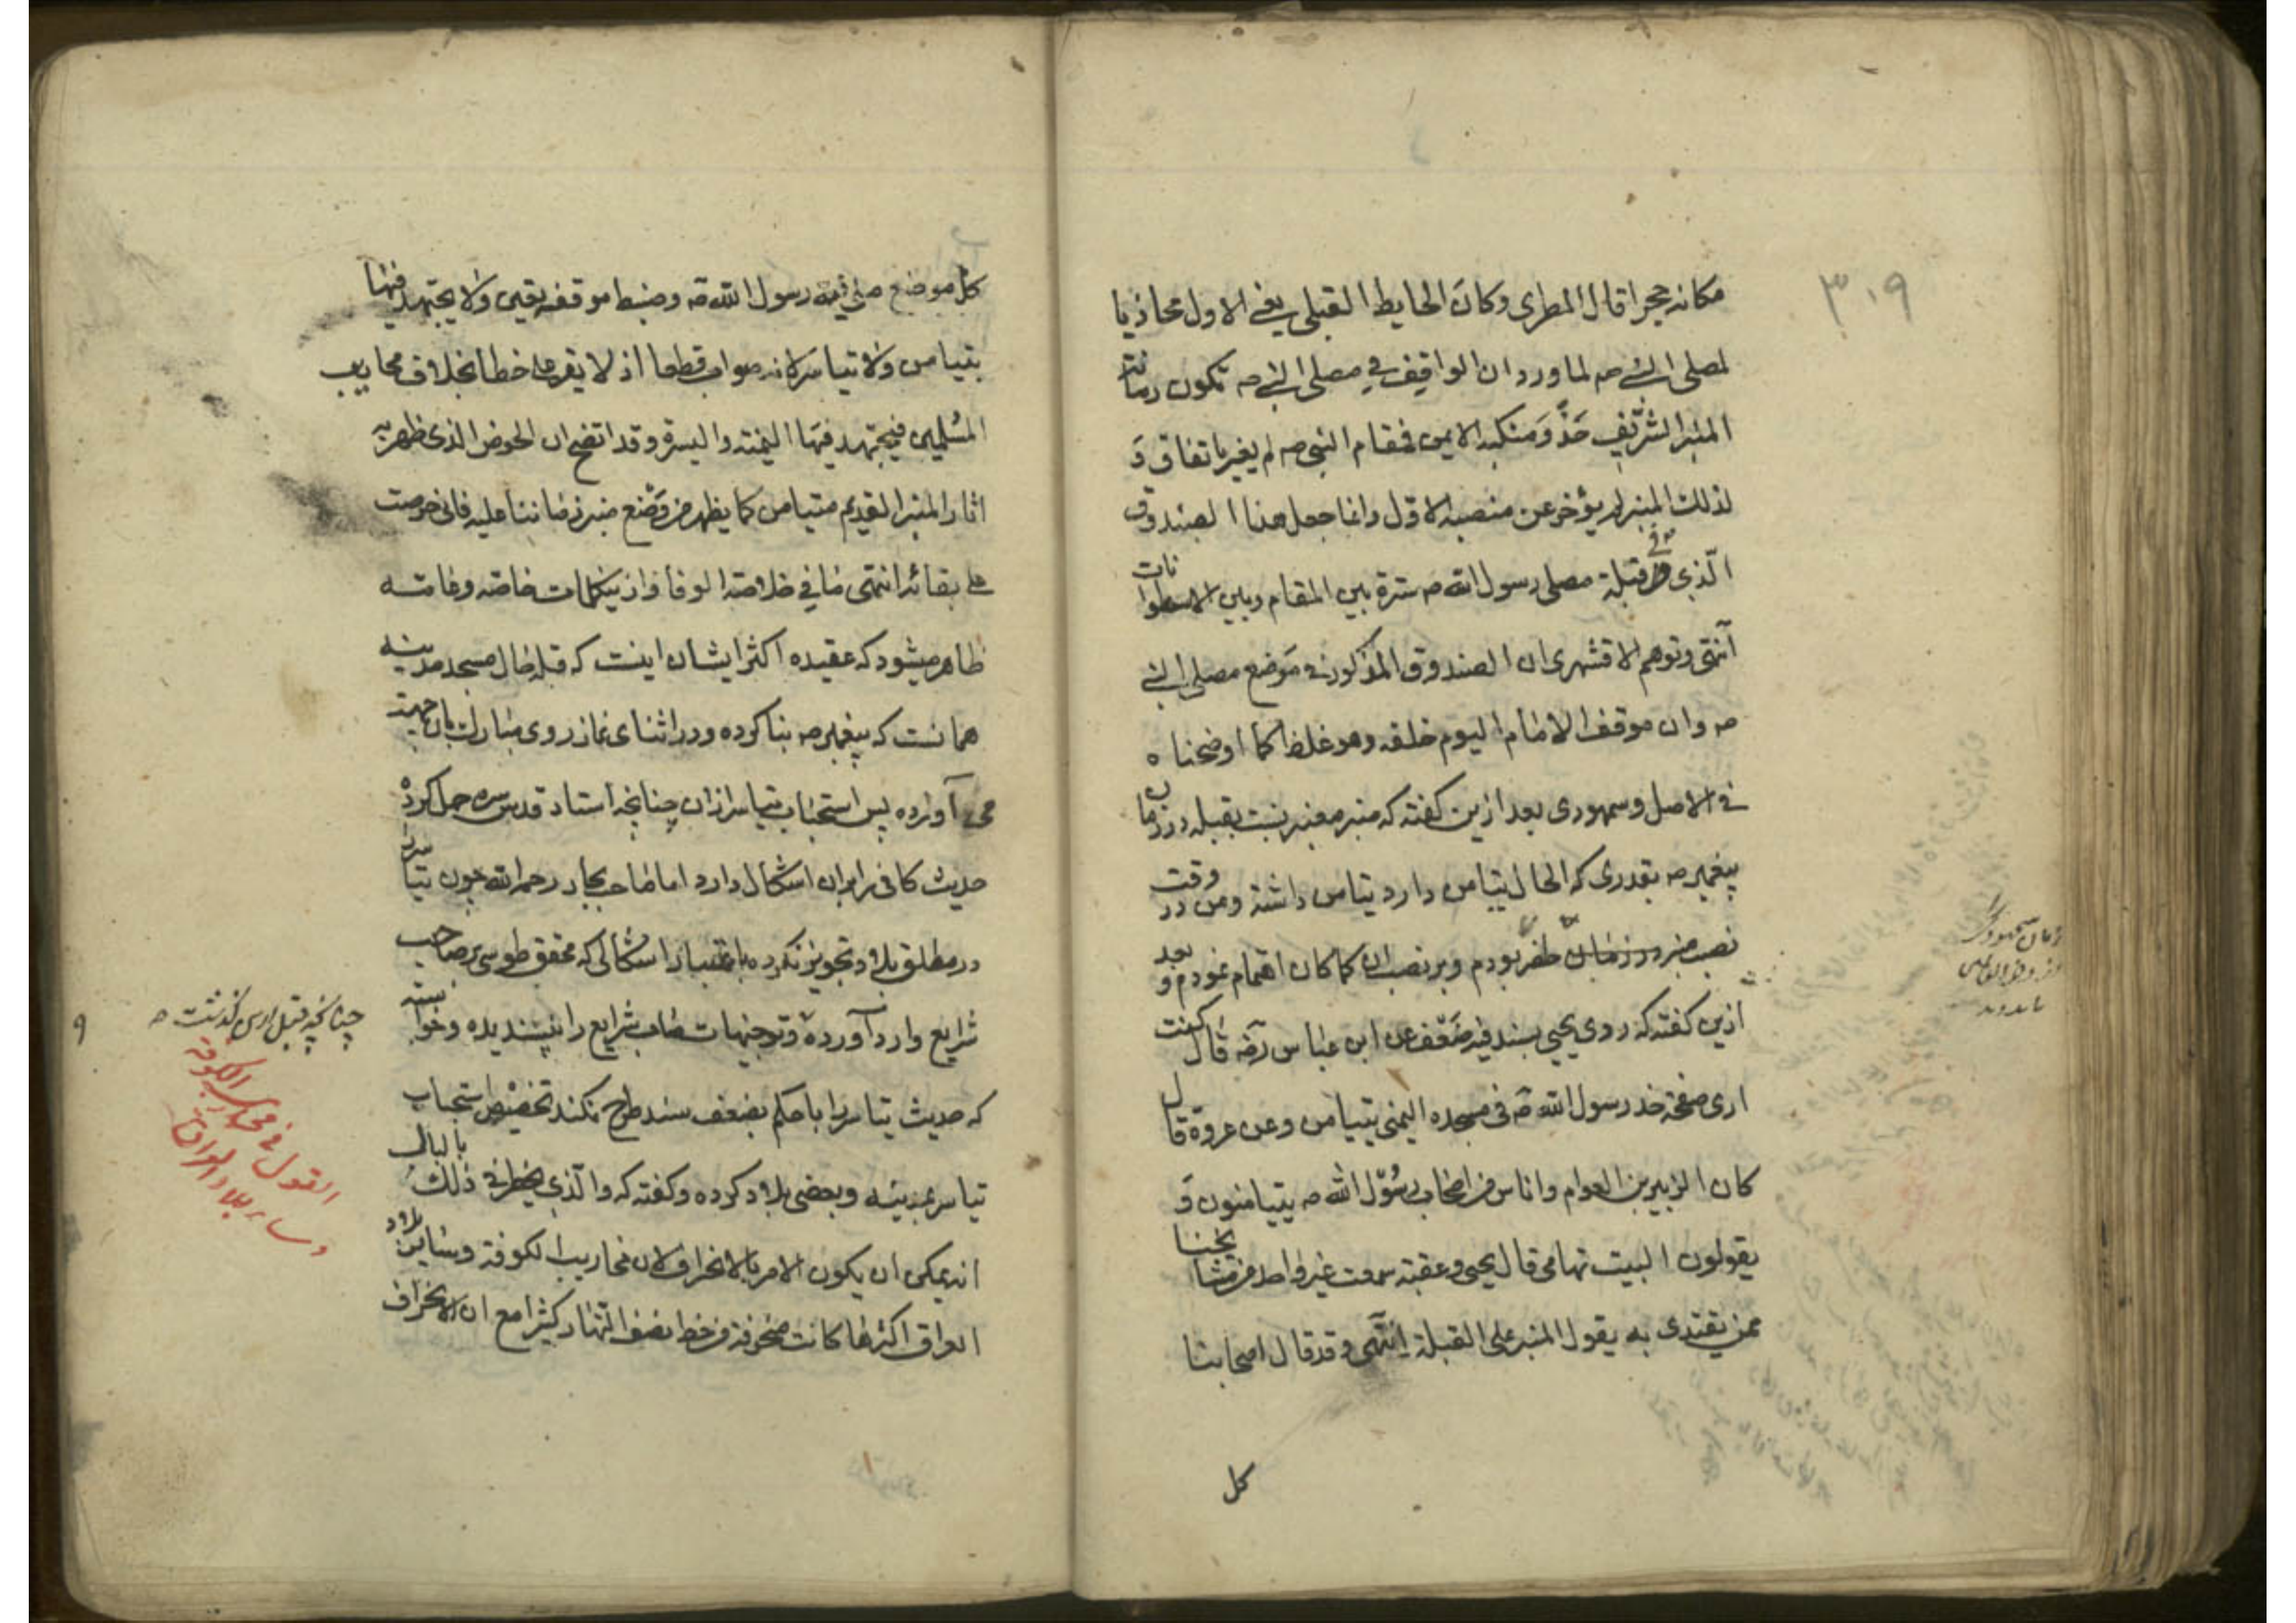 ٣٠٩
مكانه حجرا قال المطرى وكان الحايط القبلى يعنى الاول محاذيا
لمصلى النبي صه لما ورد ان الواقف في مصلى النبي صه تكون رمانة
المنبر الشريف حذو منكبه الايمن فمقام النبى صه لم يغير باتفاق و
لذلك المنبر لم يؤخر عن منصبه الاول وانما جعل هذا الصندوق
الذي في قبلة مصلى رسول الله صه سترة بين المقام وبين الاسطوانات
انتهى وتوهم الاقشهرى ان الصندوق المذكور فى موضع مصلى النبي
صه وان موقف الامام اليوم خلفه وهو غلط كما اوضحناه
فى الاصل وسمهودى بعد ازين كفته كه منبر معنبر نسبت بقبله در زمان
پيغمبر صه بقدرى كه الحال تيامن دارد تيامن داشته ومن در وقت
نصب منبر در زمان حاضر بودم وبر نصب ان كما كان اهتمام نمودم و بعد
ازين كفته كه روى يحيى بسند فيه ضعف عن ابن عباس رضه قال كنت
ارى صفحة خد رسول الله صه فى مسجده اليمنى يتيامن وعن عروة قال
كان الزبير بن العوام واناس من اصحاب رسول الله صه يتيامنون و
يقولون البيت تهامى قال يحيى وعقبة سمعت غير واحد من مشايخنا
ممن يقتدى به يقول المنبر على القبلة انتهى وقد قال اصحابنا
كل
زمان سمهودى
كل موضع صلى فيه رسول الله صه وضبط موقفه يقين ولا يجتهد فيها
بتيامن ولا تياسر لانه صواب قطعا اذ لا يقر على خطا بخلاف محاريب
المسلمين فيجتهد فيها اليمنة واليسرة وقد اتضح ان الحوض الذى ظهر به
اثار المنبر القديم متيامن كما يظهر من وضع منبر زماننا عليه فانى حرصت
على بقائه انتهى ما في خلاصة الوفا واز ينكلمات خاصه وعامه
ظاهر ميشود كه عقيده اكثر ايشان اينست كه قبله حال مسجد مدينه
همانست كه پيغمبر صه بنا كرده ودر اثناى نماز روى مبارك بان جهت
مى آورده پس استحباب تياسر ازان چنانچه استاد قدس سره حمل كرده
حديث كافى را بران اشكال دارد اما صاحب بحار رحمه الله چون تياسر را
در مطلق بلاد تجويز نكرده باعتبار اشكالى كه محقق طوسى بر صاحب
شرايع وارد آورده وتوجيهات صاحب شرايع را نپسنديده وخواسته
كه حديث تياسر را با حكم بضعف سند طرح نكند تخصيص استحباب
تياسر بمدينه وبعضى بلاد كرده وكفته كه والذى يخطر فى ذلك بالبال
انه يمكن ان يكون الامر بالانحراف لان محاريب الكوفة وساير بلاد
العراق اكثرها كانت منحرفة من خط نصف النهار كثيرا مع ان الانحراف
چنانچه قبل ازين كذشت صه
القول فى محاريب الكوفة
وساير بلاد العراق